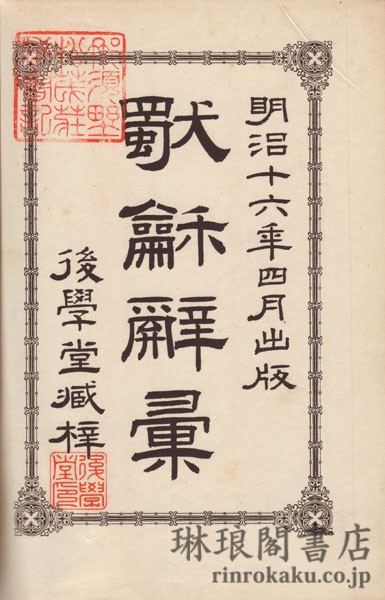 明治十六年四月出版
獨龢辭彙
後學堂臧梓
後學堂印
琳琅閣書店
rinrokaku.co.jp